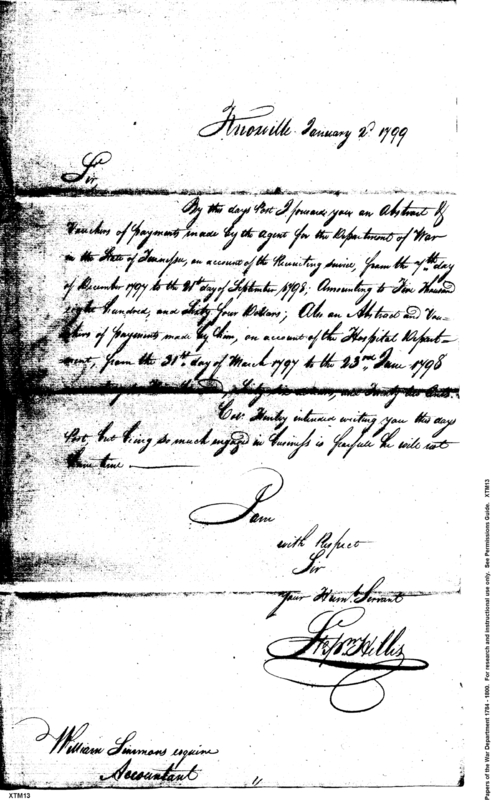 Knoxville January 2d 1799
Sir,
By this days Post I forward you an Abstract &
Vouchers of payments made by the agent for the Department of War
in the State of Tennessee, on account of the Recruiting Service, from the 7th day
of December 1797 to the 21st day of September, 1798, Amounting to Five Thousand
Hundred, and Sixty four Dollars; Also an Abstract and Vou-
chers of payments made by him, on account of the Hospital Depart-
ment, from the 31st day of March 1797 to the 23rd June 1798
and Twenty Cents.
Col. Henley intended writing you this days
Post, but being so much engaged in business is fearfull he will not
have time
I am
with Respect
Sir
your Humb. Servant
Hillis
William Simmons esquire
Accountant
XTM13
Papers of the War Department 1784 - 1800. For research and instructional use only. See Permissions Guide. XTM13